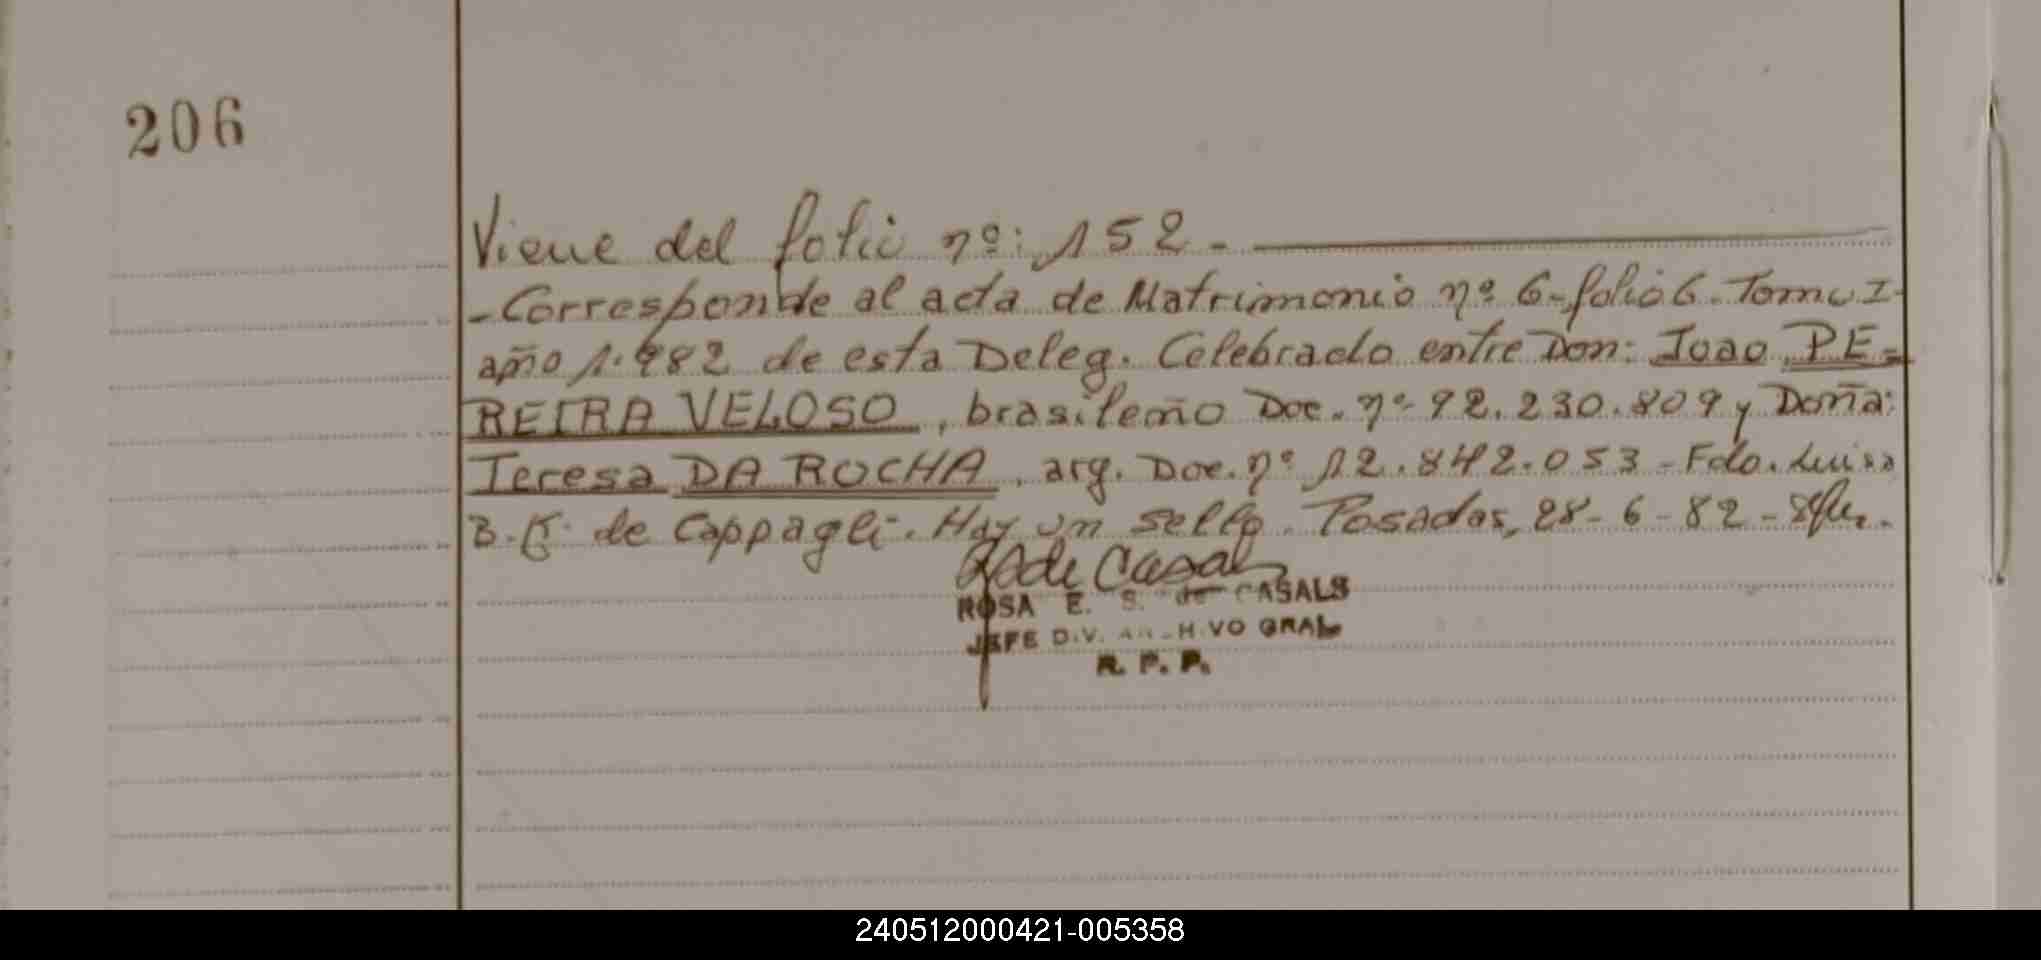 206
Viene del folio nº: 152 -
- Corresponde al acta de Matrimonio nº 6 - folio 6. Tomo I -
año 1.982 de esta Deleg. Celebrado entre Don: Joao PE=
REIRA VELOSO, brasileño Doc. nº 92.230.809 y Doña:
Teresa DA ROCHA, arg. Doc. nº 12.842.053 - Fdo. Luisa
B. de Cappagli. Hay un sello. Posadas, 28-6-82 -
de Casals
ROSA E. S. de CASALS
JEFE DIV. ARCHIVO GRAL
R. P. P.
240512000421-005358